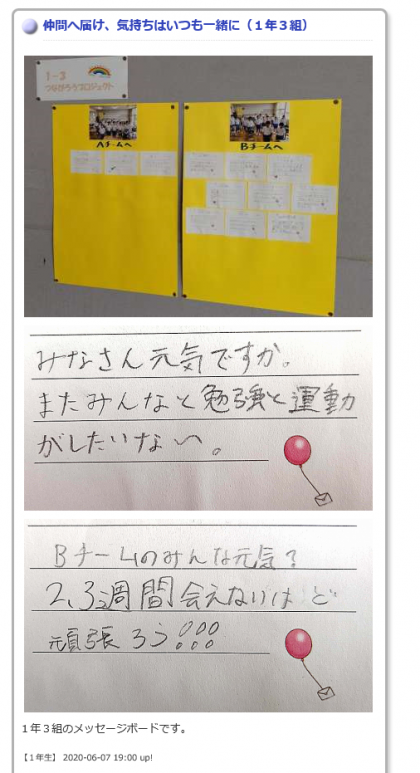 仲間へ届け、気持ちはいつも一緒に（１年３組）
1-3
つながろうプロジェクト
Aチームへ
Bチームへ
みなさん元気ですか。
またみんなと勉強と運動
がしたいな〜。
Bチームのみんな元気？
2,3週間会えないけど
頑張ろう!!!
１年３組のメッセージボードです。
【１年生】 2020-06-07 19:00 up!